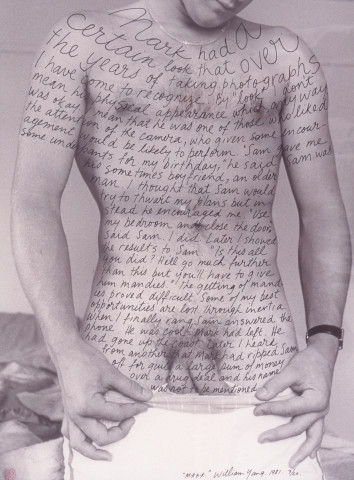 Mark had a
certain look that over
the years of taking photographs
I have come to recognize. By "look" I don't
mean his physical appearance which any way
was okay. I mean that he was one of those who liked
the attention of the camera, who given some encour-
agement would be likely to perform. "Sam gave me
some underpants for my birthday," he said. Sam was
his sometimes boyfriend, an older
man. I thought that Sam would
try to thwart my plans but in-
stead he encouraged me. "Use
my bedroom and close the door,"
said Sam. I did. Later I showed
the results to Sam. "Is this all
you did? He'll go much further
than this but you'll have to give
him mandies." The getting of mand-
ies proved difficult. Some of my best
opportunities are lost through inertia.
When I finally rang, Sam answered the
phone. He was cool. Mark had left. He
had gone up the coast. Later I heard,
from another that Mark had ripped Sam
off for quite a large sum of money
over a drug deal and his name
was not to be mentioned.
"MARK." William Yang. 1981.